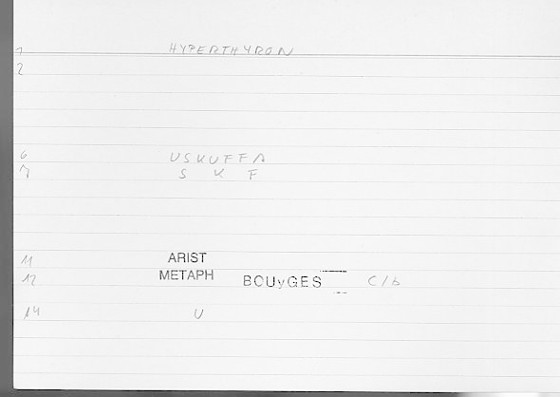 1 HYPERTHYRON
2
6 USKUFFA
7 S K F
11 ARIST
12 METAPH BOUyGES C/b
14 U